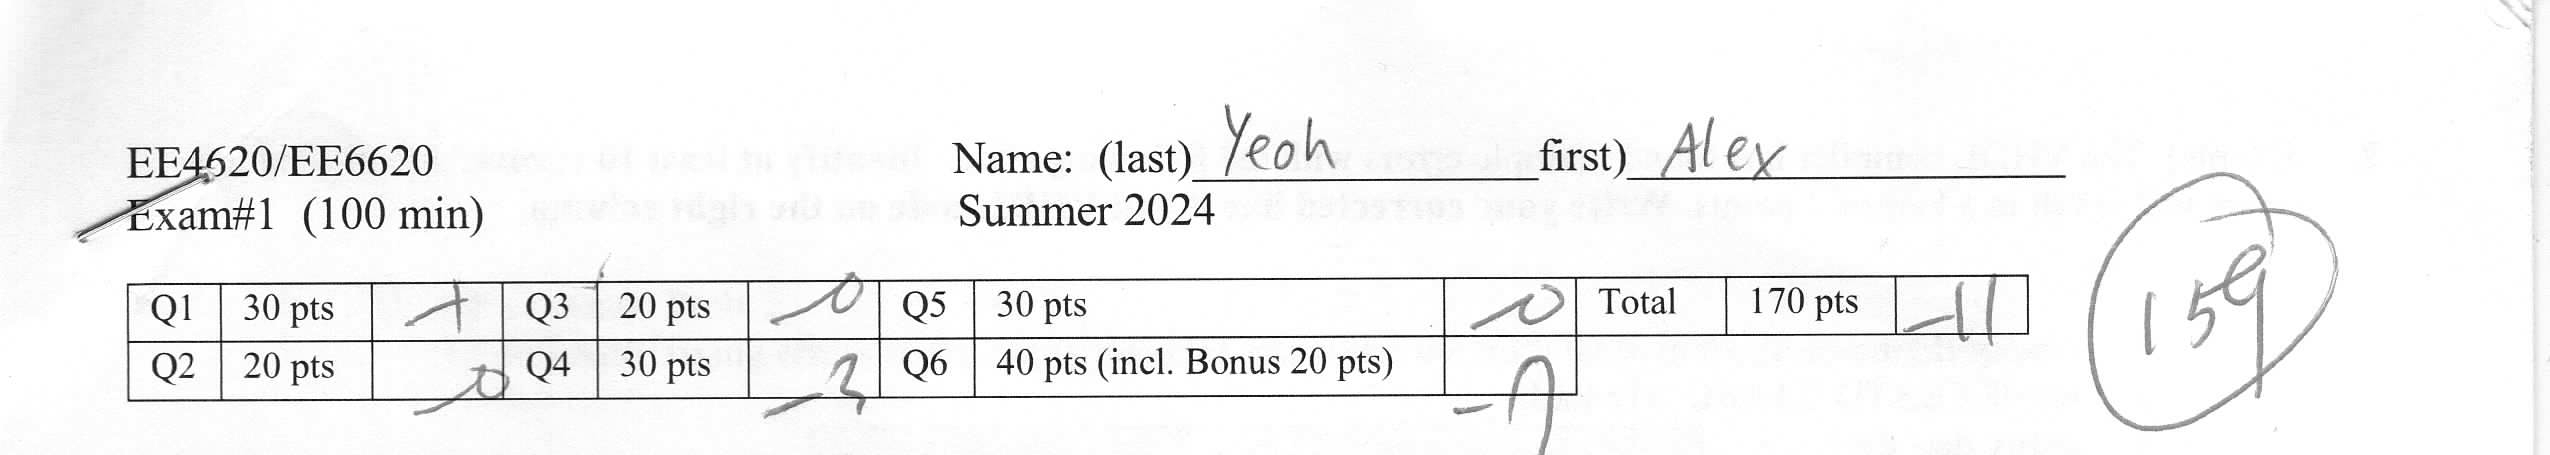 EE4620/EE6620 Name: (last) Yeoh first) Alex
Exam#1 (100 min) Summer 2024
Q1 30 pts Q3 20 pts -0 Q5 30 pts -0 Total 170 pts -11
Q2 20 pts -0 Q4 30 pts -3 Q6 40 pts (incl. Bonus 20 pts) -7
159